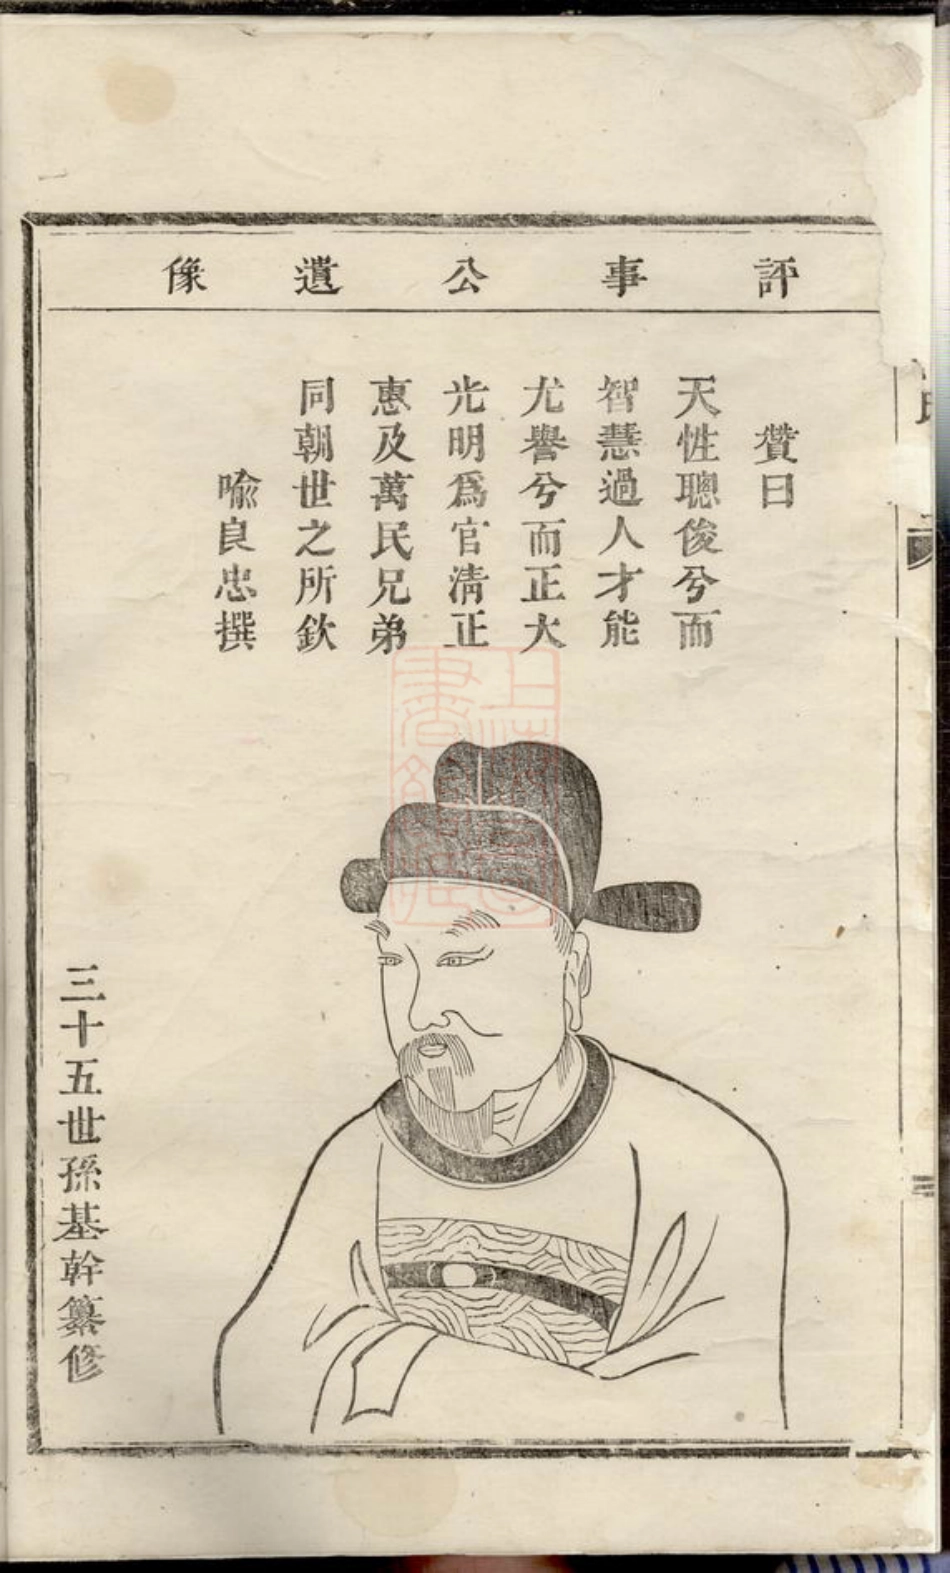 評事公遺像
贊曰
天性聰俊兮而
智慧過人才能
尤譽兮而正大
光明爲官清正
惠及萬民兄弟
同朝世之所欽
喻良忠撰
三十五世孫基幹纂修
上海圖書館藏